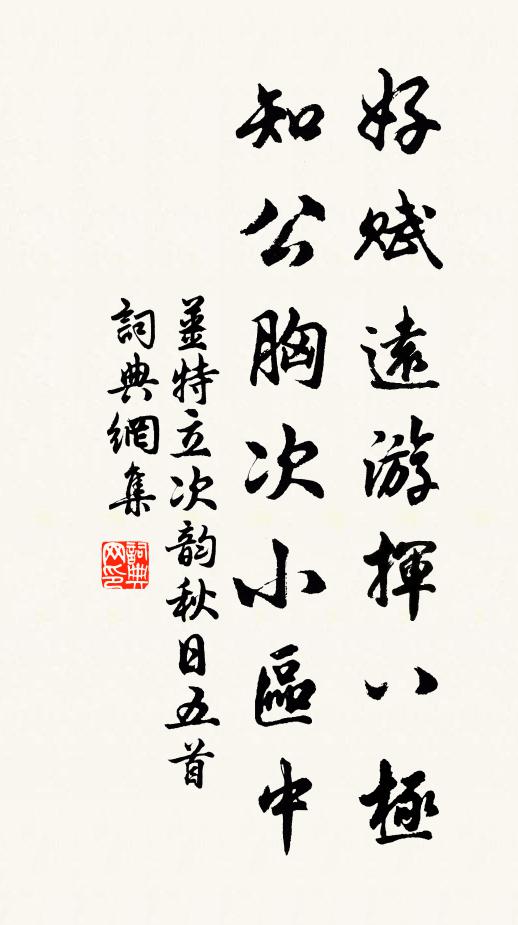 好赋遠游揮八極
知公胸次小區中
薑特立次韵秋日五首
詞典網集
詞典网印